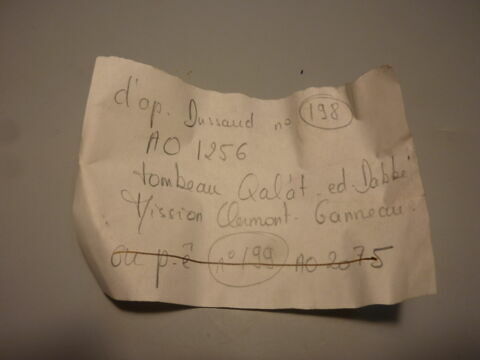 d'op. Dussaud no 198
AO 1256
tombeau Qal'at-ed-Dabbé
Mission Clermont-Ganneau.
ou p.ê n° 199 AO 2075